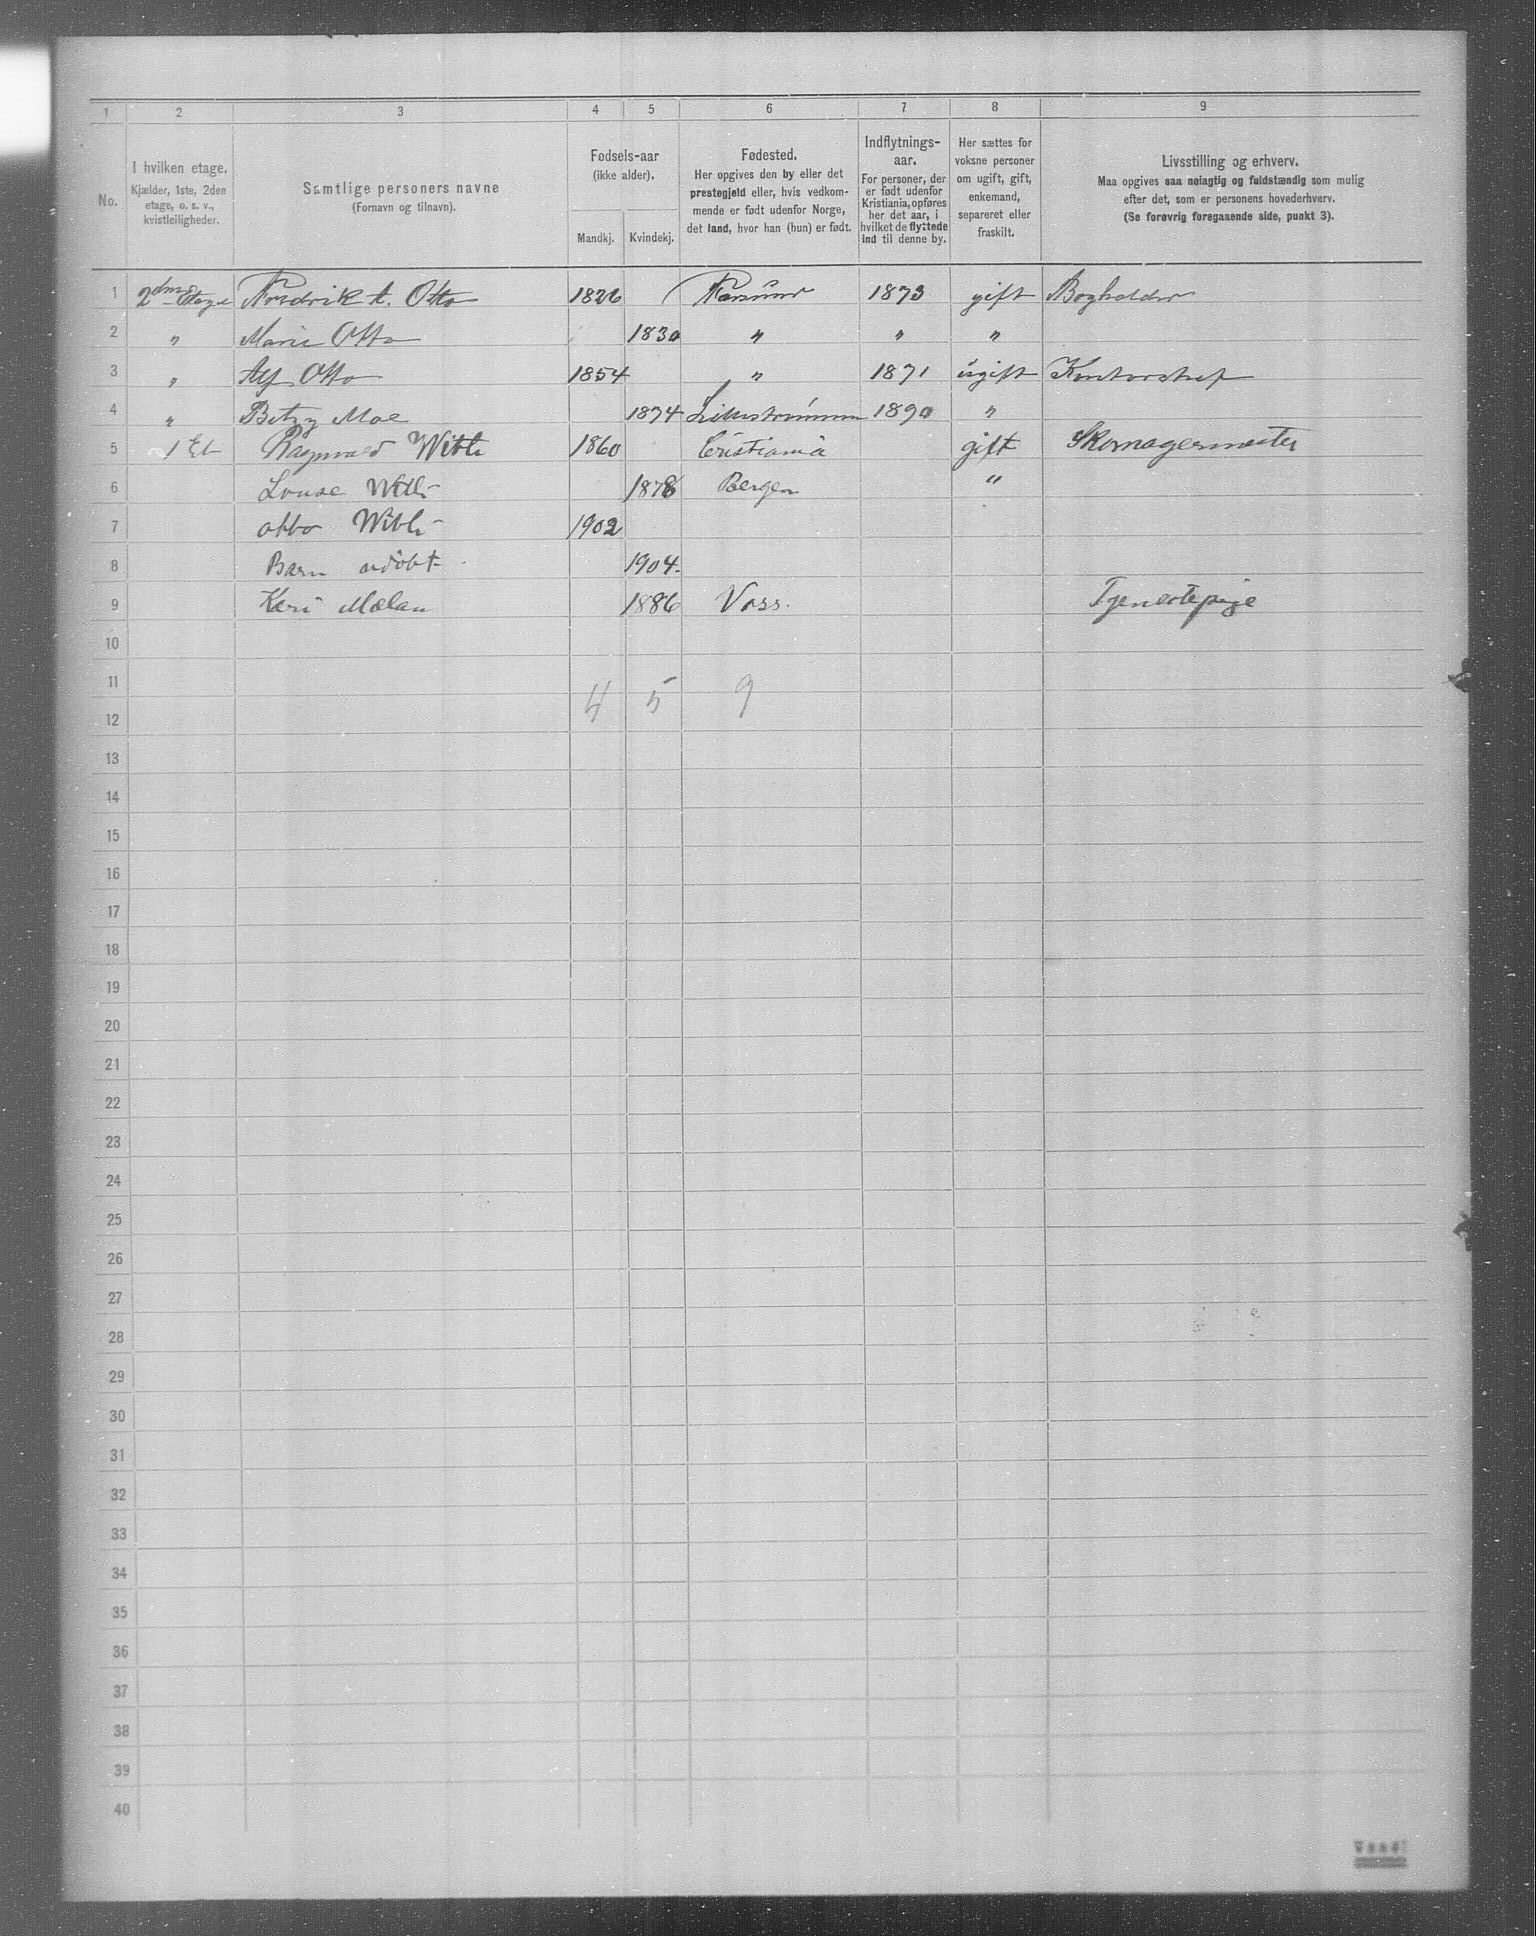 1 2 3 4 5 6 7 8 9
No.
I hvilken etage.
Kjælder, 1ste, 2den
etage, o. s. v.,
kvistleiligheder.
Samtlige personers navne
(Fornavn og tilnavn).
Fødsels-aar
(ikke alder).
Mandkj. Kvindekj.
Fødested.
Her opgives den by eller det
prestegjeld eller, hvis vedkom-
mende er født udenfor Norge,
det land, hvor han (hun) er født.
Indflytnings-
aar.
For personer, der
er født udenfor
Kristiania, opføres
her det aar, i
hvilket de flyttede
ind til denne by.
Her sættes for
voksne personer
om ugift, gift,
enkemand,
separeret eller
fraskilt.
Livsstilling og erhverv.
Maa opgives saa nøiagtig og fuldstændig som mulig
efter det, som er personens hovederhverv.
(Se forøvrig foregaaende side, punkt 3).
1 2den Etage Fredrik A. Otto 1826 Farsund 1873 gift Bogholder
2 " Marie Otto 1830 " " "
3 " Alf Otto 1854 " 1871 ugift Kontorchef
4 " Betzy Moe 1874 1890 "
5 1 Et Ragnvald 1860 Cristiania gift Skomagermester
6 1878 Bergen "
7 otto 1902
8 Barn udöbt 1904.
9 Kari Mælan 1886 Voss. Tjenestepige
10
11
4 5 9
12
13
14
15
16
17
18
19
20
21
22
23
24
25
26
27
28
29
30
31
32
33
34
35
36
37
38
39
40
Vend!